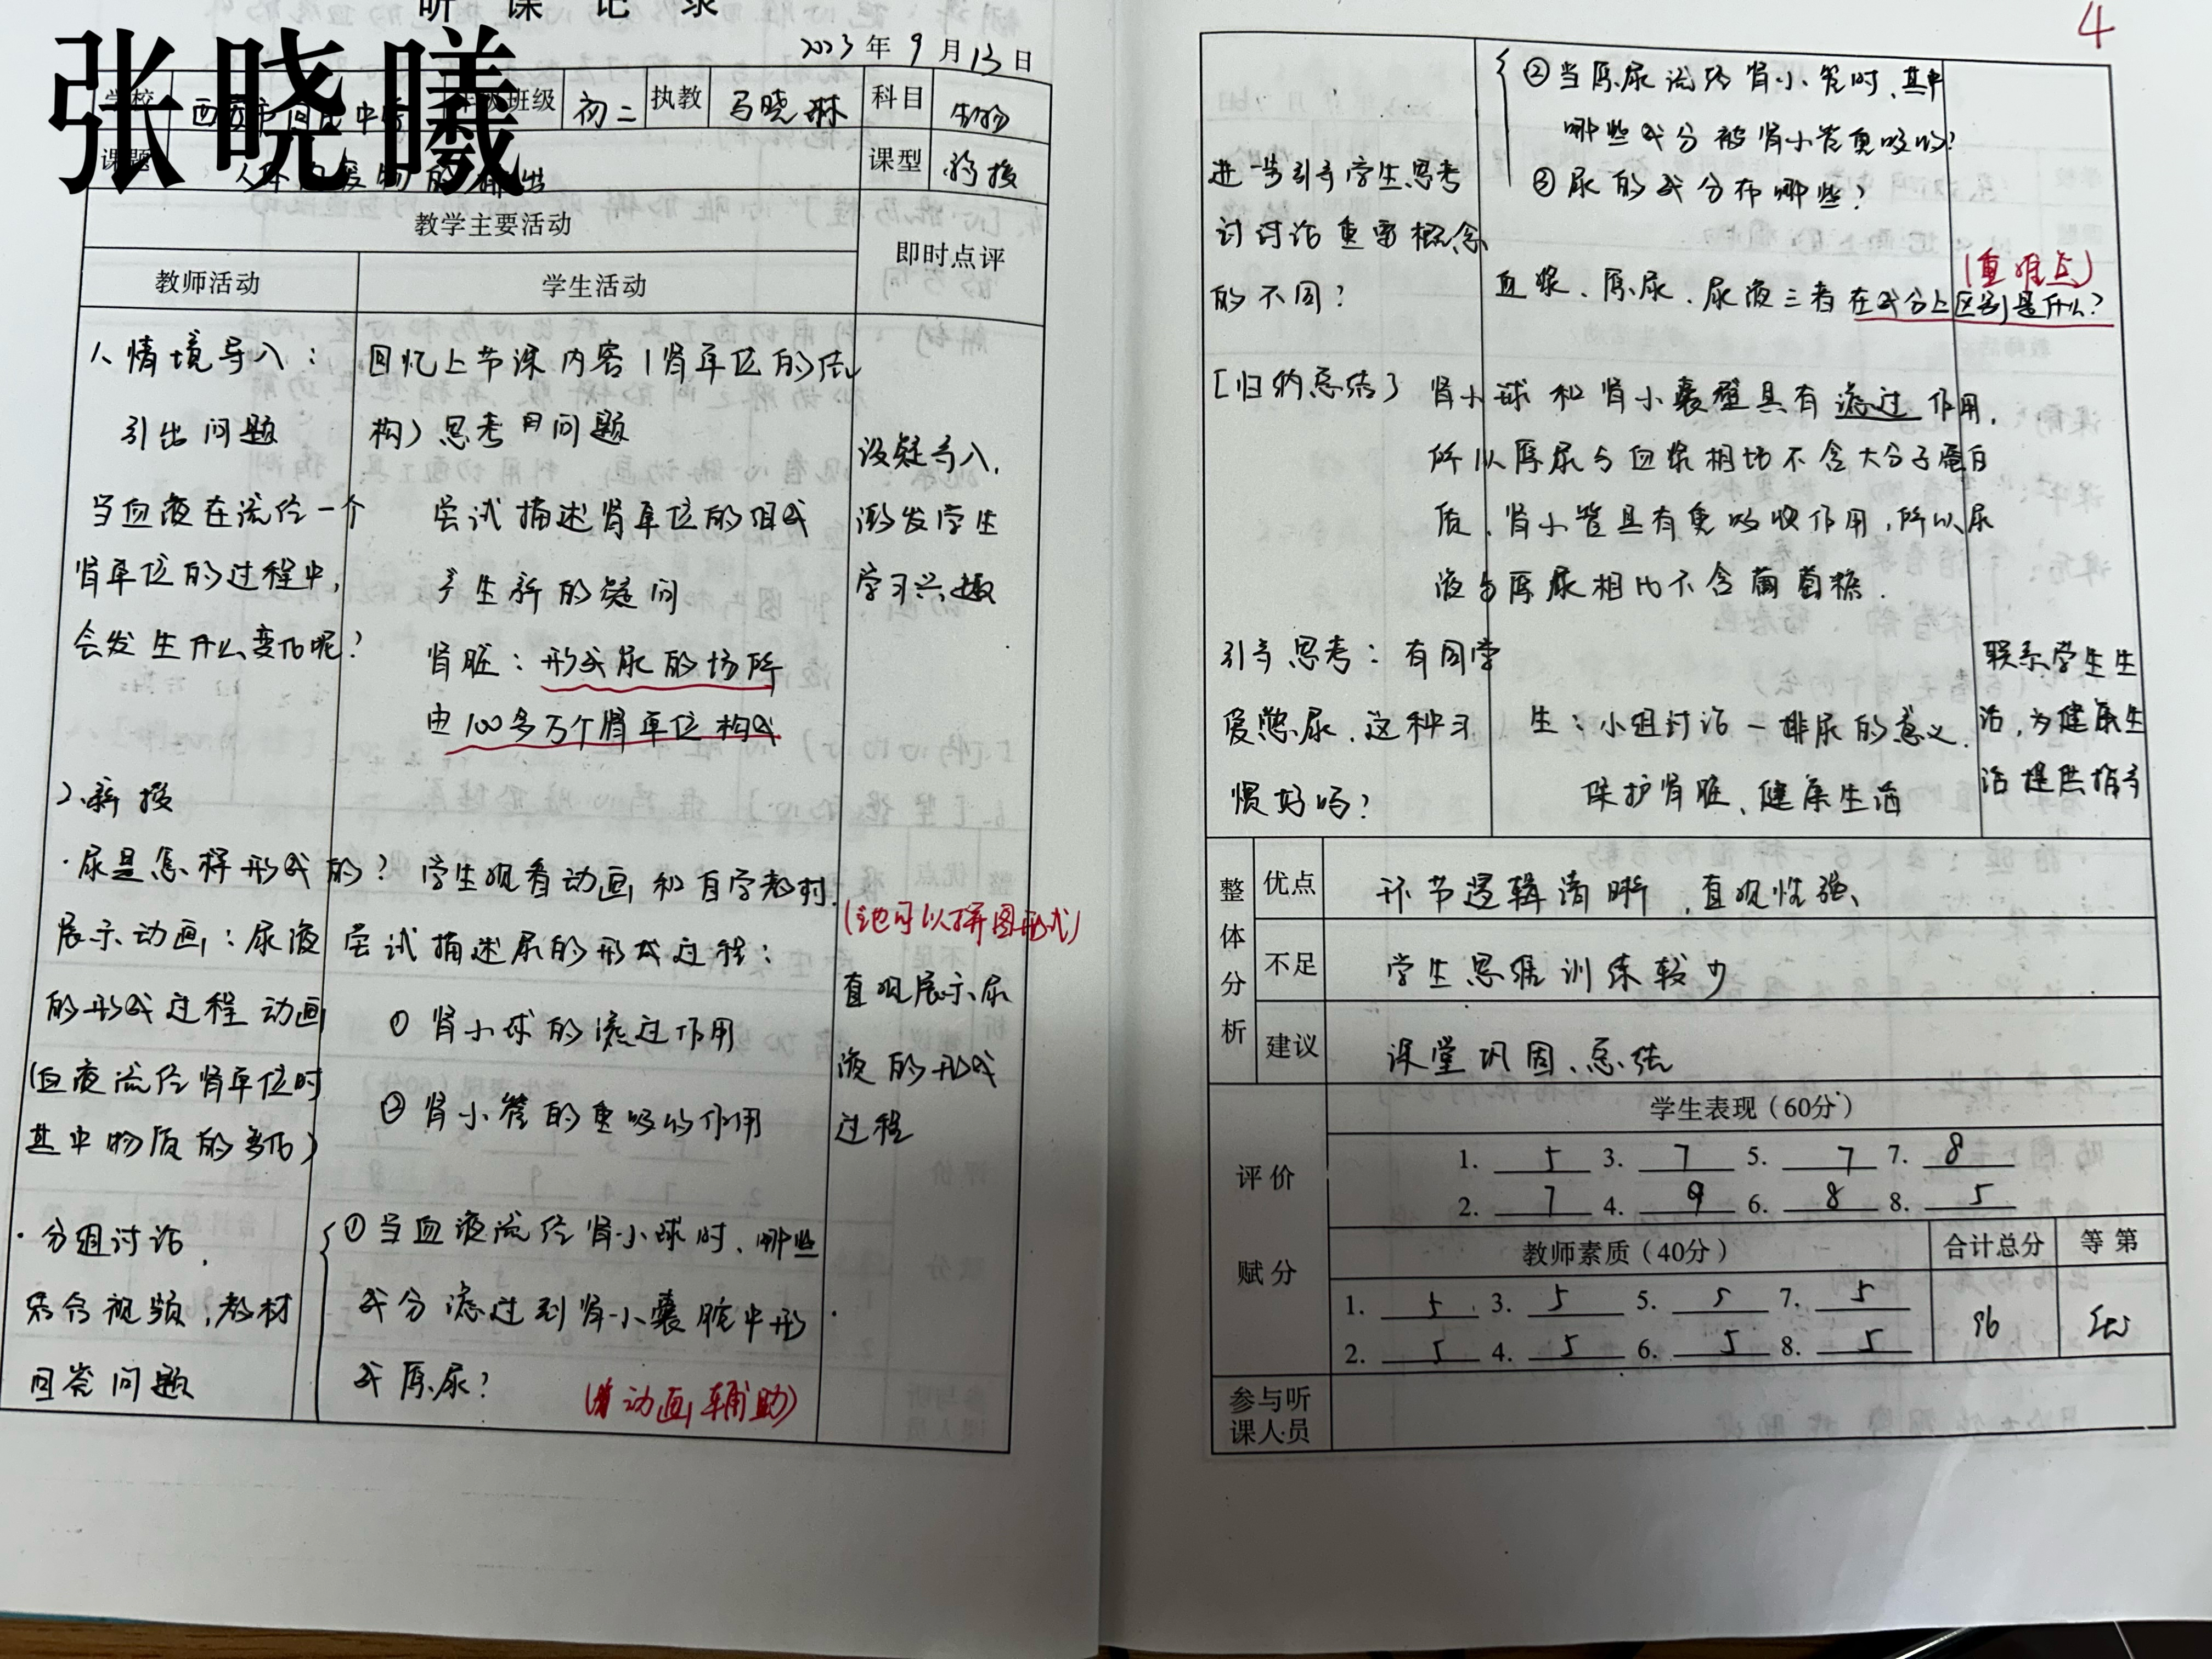 听课记录
张晓曦
2023年9月13日
学校 年级班级 初二 执教 马晓琳 科目 生物
课题 人体内废物的排出 课型 新授
教学主要活动
即时点评
教师活动 学生活动
1、情境导入：
引出问题
当血液在流经一个
肾单位的过程中，
会发生什么变化呢？
2、新授
·尿是怎样形成的？
展示动画：尿液
的形成过程动画
(血液流经肾单位时
其中物质的变化)
·分组讨论，
结合视频，教材
回答问题
回忆上节课内容(肾单位的结
构)思考问题
尝试描述肾单位的组成
产生新的疑问
肾脏：形成尿的场所
由100多万个肾单位构成
学生观看动画和自学教材.
尝试描述尿的形成过程：
① 肾小球的滤过作用
② 肾小管的重吸收作用
①当血液流经肾小球时、哪些
成分滤过到肾小囊腔中形
成原尿？
(动画辅助)
设疑导入，
激发学生
学习兴趣
(也可以拼图形式)
直观展示尿
液的形成
过程
4
②当原尿流经肾小管时、其中
哪些成分被肾小管重吸收？
③尿的成分有哪些？
进一步引导学生思考
讨讨论重要概念
的不同？
(重难点)
血浆、原尿、尿液三者在成分上区别是什么？
[归纳总结]肾小球和肾小囊壁具有滤过作用，
所以原尿与血浆相比不含大分子蛋白
质、肾小管具有重吸收作用，所以尿
液与原尿相比不含葡萄糖.
引导思考：有同学
爱憋尿、这种习
惯好吗？
生：小组讨论—排尿的意义.
保护肾脏、健康生活
联系学生生
活，为健康生
活提供指导
整体分析
优点 环节逻辑清晰，直观性强、
不足 学生思维训练较少
建议 课堂巩固、总结
评价赋分
学生表现（60分）
1. 5 3. 7 5. 7 7. 8
2. 7 4. 9 6. 8 8. 5
教师素质（40分） 合计总分 等第
1. 5 3. 5 5. 5 7. 5
2. 5 4. 5 6. 5 8. 5
96 优
参与听
课人员